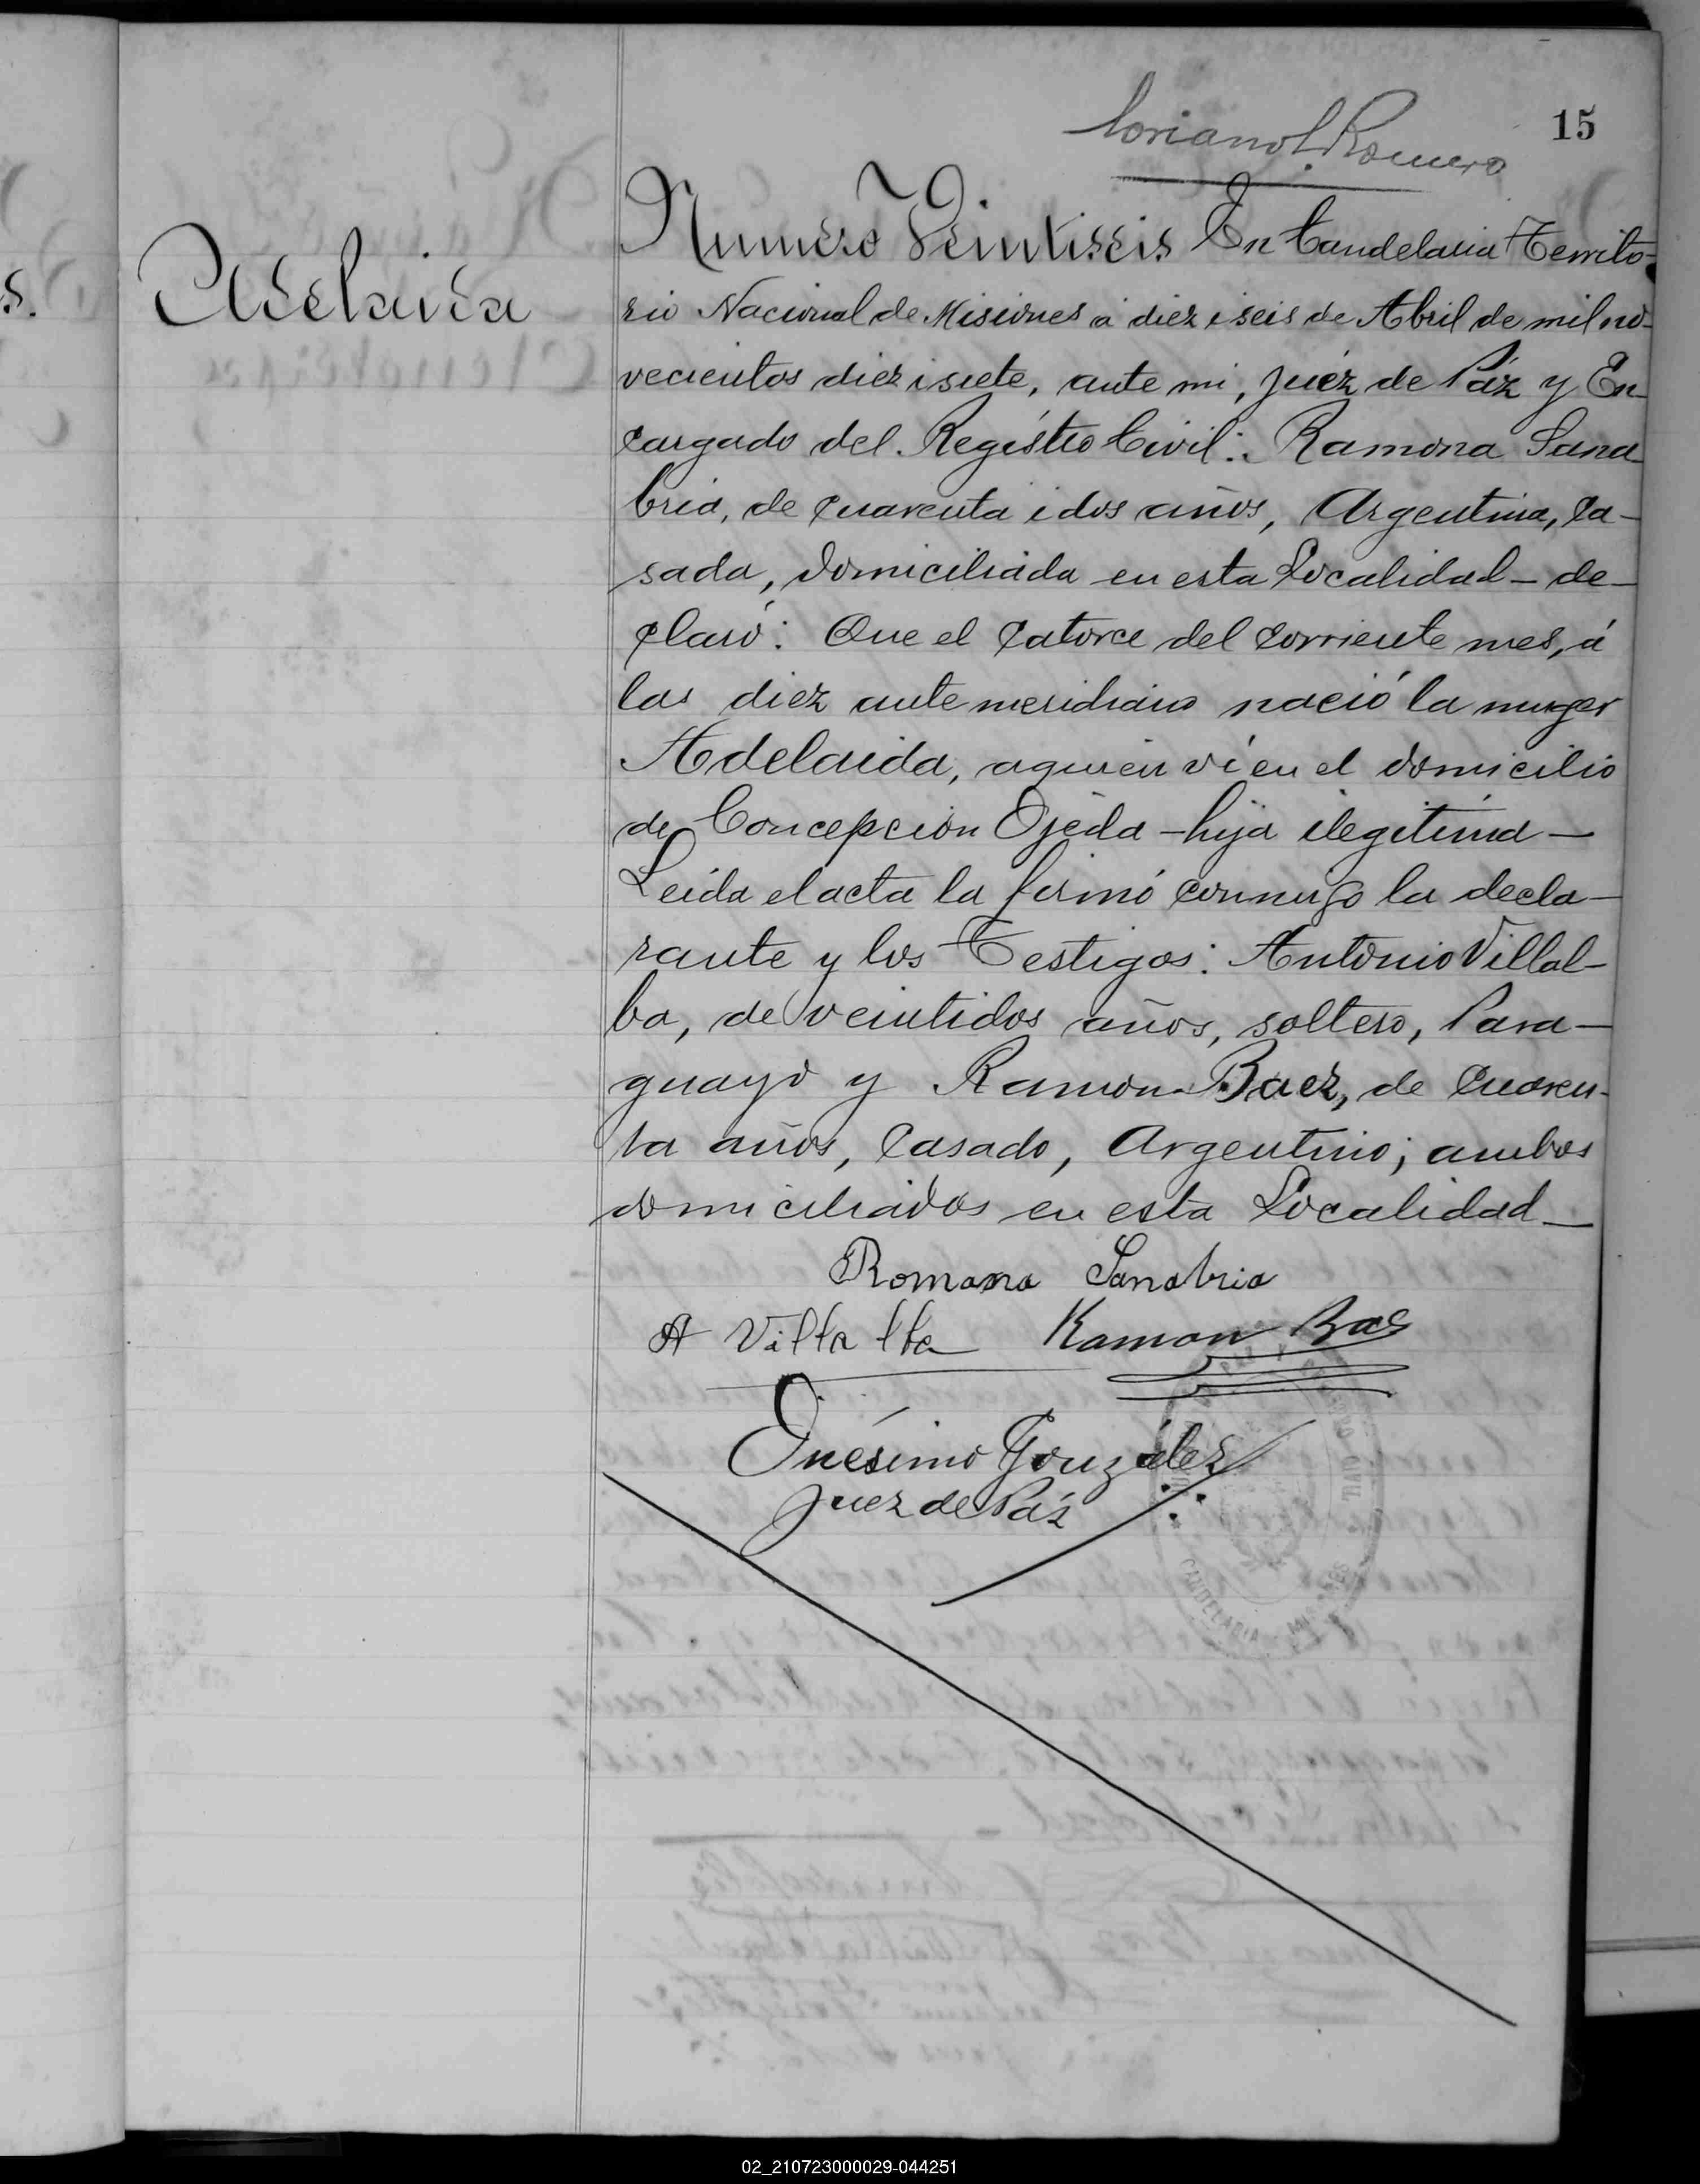 15
Corianol. Romero
Adelaida
s.
Numero Veintiseis En Candelaria Territo-
rio Nacional de Misiones á diez i seis de Abril de mil no-
vecientos diez i siete, ante mi, Juéz de Páz y En-
cargado del Registro Civil: Ramona Sana-
bria, de cuarenta i dos años, Argentina, Ca-
sada, domiciliada en esta Localidad - de-
claró: Que el catorce del corriente mes, á
las diez ante meridiano nació la muger
Adelaida, aquien ví en el domicilio
de Concepcion Ojeda - hija ilegitima -
Leida el acta la firmó conmigo la decla-
rante y los Testigos: Antonio Villal-
ba, de veintidos años, soltero, Para-
guayo y Ramon Baez, de cuaren-
ta años, Casado, Argentino; ambos
domiciliados en esta Localidad -
Romana Sanabria
A Villalba Ramon Baes
Onésimo González
Juez de Páz
CANDELARIA MISIONES
02_210723000029-044251